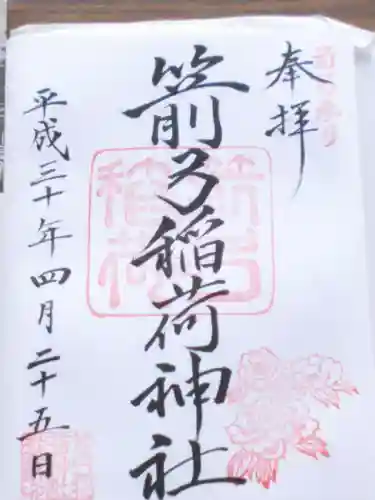 奉拝
箭弓稲荷神社
平成三十年四月二十五日
箭弓
稲荷